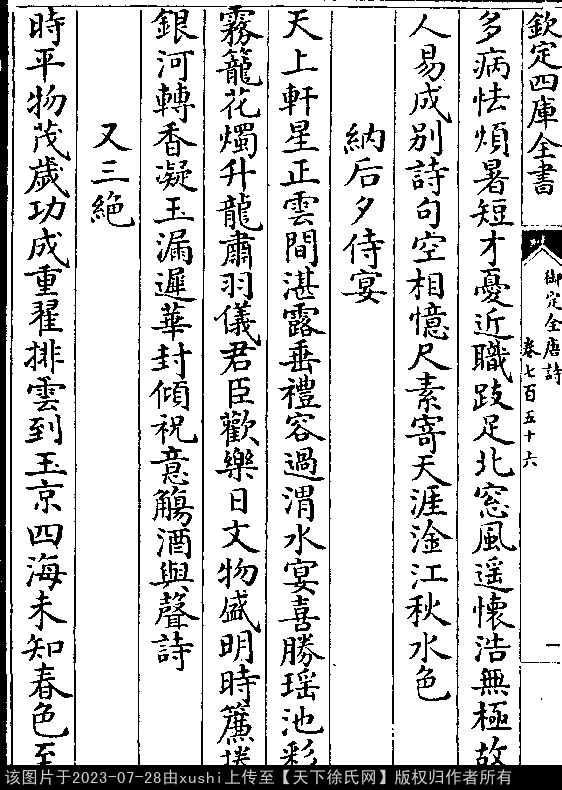 欽定四庫全書
御定全唐詩
卷七百五十六
一
多病怯煩暑短才憂近職跂足北窓風遥懷浩無極故
人易成別詩句空相憶尺素寄天涯淦江秋水色
納后夕侍宴
天上軒星正雲間湛露垂禮容過渭水宴喜勝瑶池彩
霧籠花燭升龍肅羽儀君臣歡樂日文物盛明時簾捲
銀河轉香凝玉漏遲華封傾祝意觴酒與聲詩
又三絶
時平物茂歲功成重翟排雲到玉京四海未知春色至
该图片于2023-07-28由xushi上传至【天下徐氏网】版权归作者所有